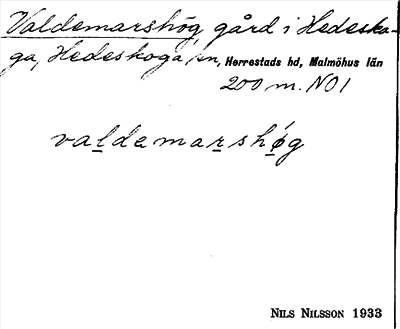 Valdemarshög, gård i Hedesko-
ga, Hedeskoga sn, Herrestads hd, Malmöhus län
200 m. NO1
valdemarshǿg
NILS NILSSON 1933